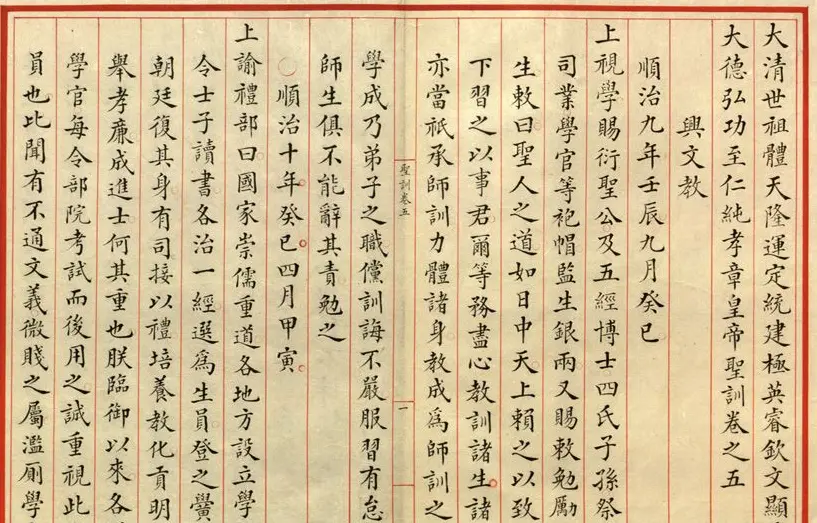 大清世祖體天隆運定統建極英睿欽文顯
大德弘功至仁純孝章皇帝聖訓卷之五
興文教
順治九年壬辰九月癸巳
上視學賜衍聖公及五經博士四氏子孫祭
司業學官等袍帽監生銀兩又賜敕勉勵
生敕曰聖人之道如日中天上賴之以致
下習之以事君爾等務盡心教訓諸生諸
亦當祇承師訓力體諸身教成為師訓之
聖訓卷五
一
學成乃弟子之職儻訓誨不嚴服習有怠
師生俱不能辭其責勉之
○順治十年癸巳四月甲寅
上諭禮部曰國家崇儒重道各地方設立學
令士子讀書各治一經選為生員登之黌
朝廷復其身有司接以禮培養教化貢明
舉孝廉成進士何其重也朕臨御以來各
學官每令部院考試而後用之誠重視此
員也比聞有不通文義微賤之屬濫厠學